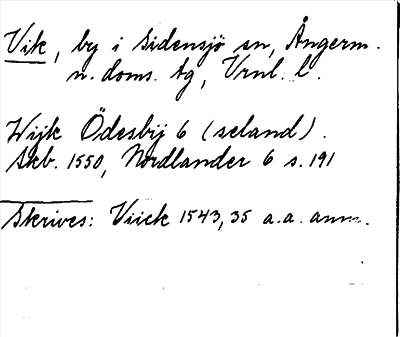 Vik, by i Sidensjö sn, Ångerm.
n. doms. tg, Vrnl. l.
Wijk Ödesbij 6 (seland).
Skb. 1550, Nordlander 6 s. 191
Skrives: Viick 1543, 35 a.a. anm.